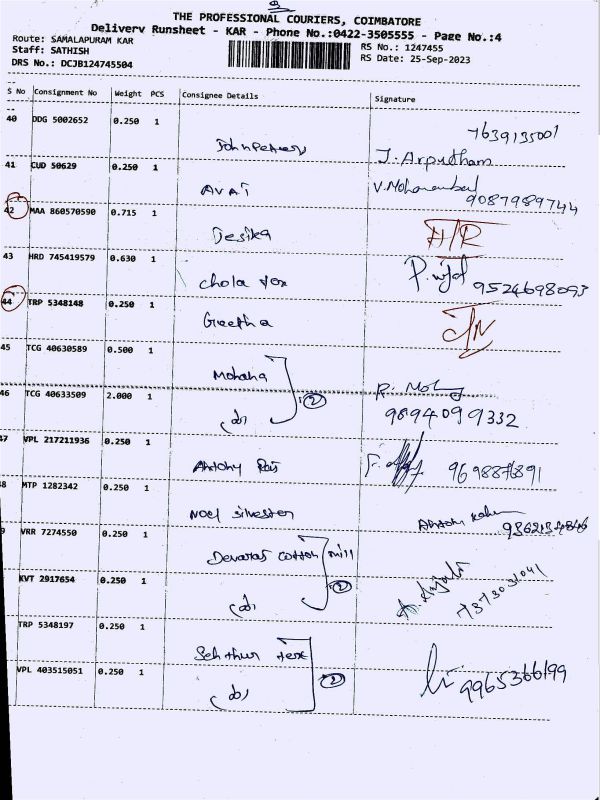 THE PROFESSIONAL COURIERS, COIMBATORE
Delivery Runsheet - KAR - Phone No.:0422-3505555 - Page No.:4
Route: SAMALAPURAM KAR
RS No.: 1247455
Staff: SATHISH
RS Date: 25-Sep-2023
DRS No.: DCJB124745504
S No Consignment No Weight PCS Consignee Details Signature
40 DDG 5002652 0.250 1
7639135001
J. Arputham
41 CUD 50629 0.250 1
AVAT
9087989744
42 MAA 860570590 0.715 1
Desika
43 HRD 745419579 0.630 1
chola tex
9524698093
44 TRP 5348148 0.250 1
Geetha
45 TCG 40630589 0.500 1
Mohana
46 TCG 40633509 2.000 1
2
9894099332
47 VPL 217211936 0.250 1
Antony
9698876891
8 MTP 1282342 0.250 1
Noel silvester
9 VRR 7274550 0.250 1
cotton mill
KVT 2917654 0.250 1
2
7373031041
TRP 5348197 0.250 1
tex
VPL 403515051 0.250 1
2
9965366199